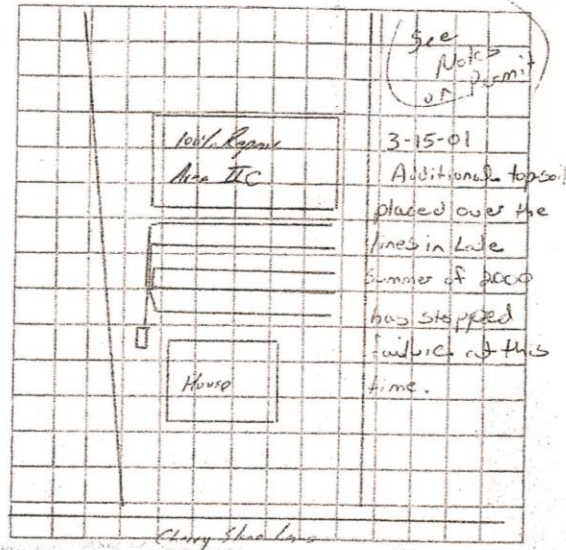 See
Notes
on permit
100% Repair
Area IIC
3-15-01
Additional topsoil
placed over the
lines in Late
Summer of 2000
has stopped
failure at this
time.
House
Cherry Lane